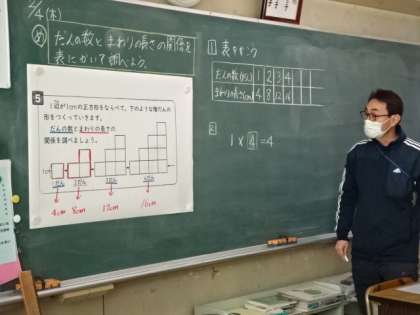 2/4(木)
め だんの数とまわりの長さの関係を
表にかいて調べよう。
5
1辺が1cmの正方形をならべて、下のような階だんの
形をつくっていきます。
だんの数とまわりの長さの
関係を調べましょう。
1cm
1だん 2だん 3だん 4だん
4cm 8cm 12cm 16cm
1 表
だんの数(だん) 1 2 3 4
まわりの長さ(cm) 4 8 12 16
2
1×4=4